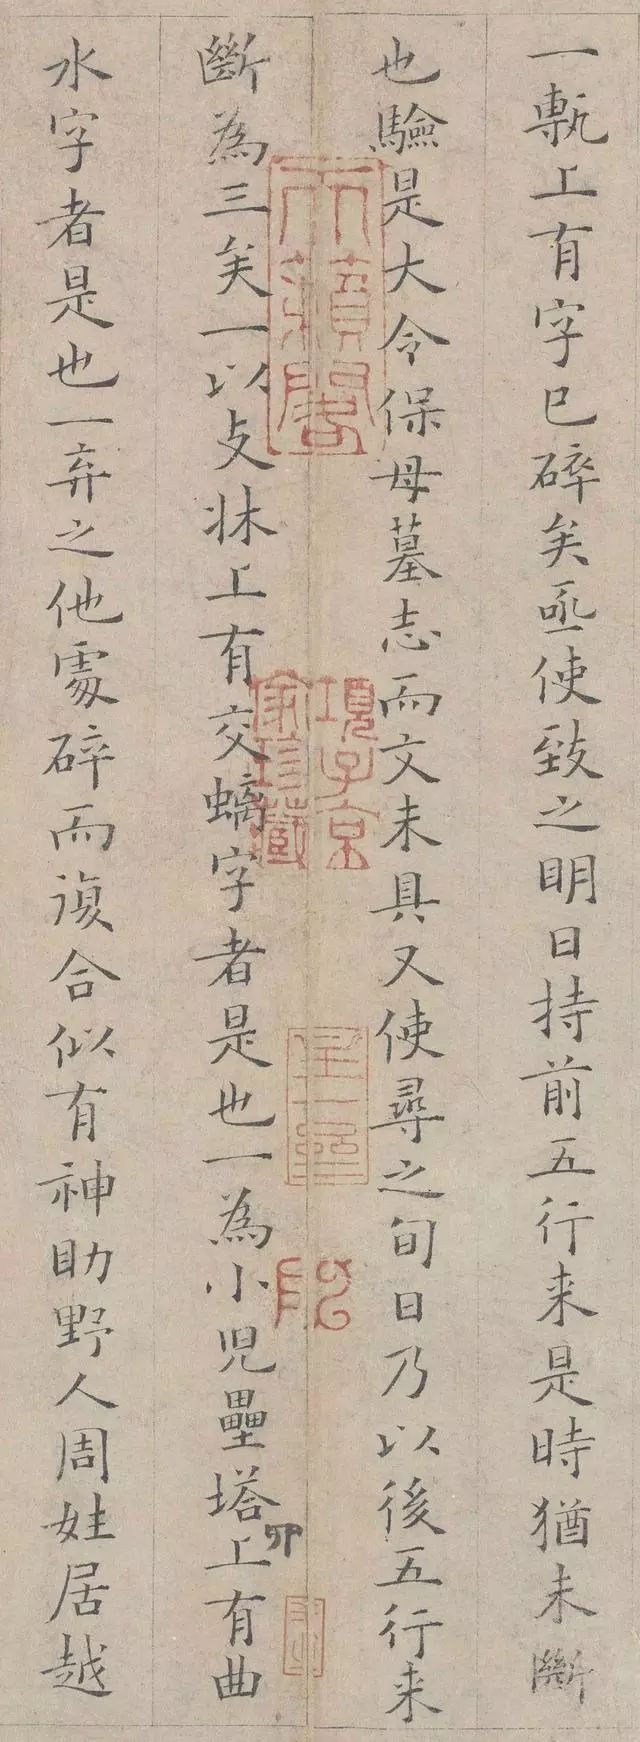 一甎上有字已碎矣亟使致之明日持前五行来是時猶未斷
也驗是大令保母墓志而文未具又使尋之旬日乃以後五行来
斷為三矣一以攴牀上有交螭字者是也一為小児壘塔上有曲
水字者是也一弃之他處碎而復合似有神助野人周姓居越
天籟閣
項子京
家珍藏
卯